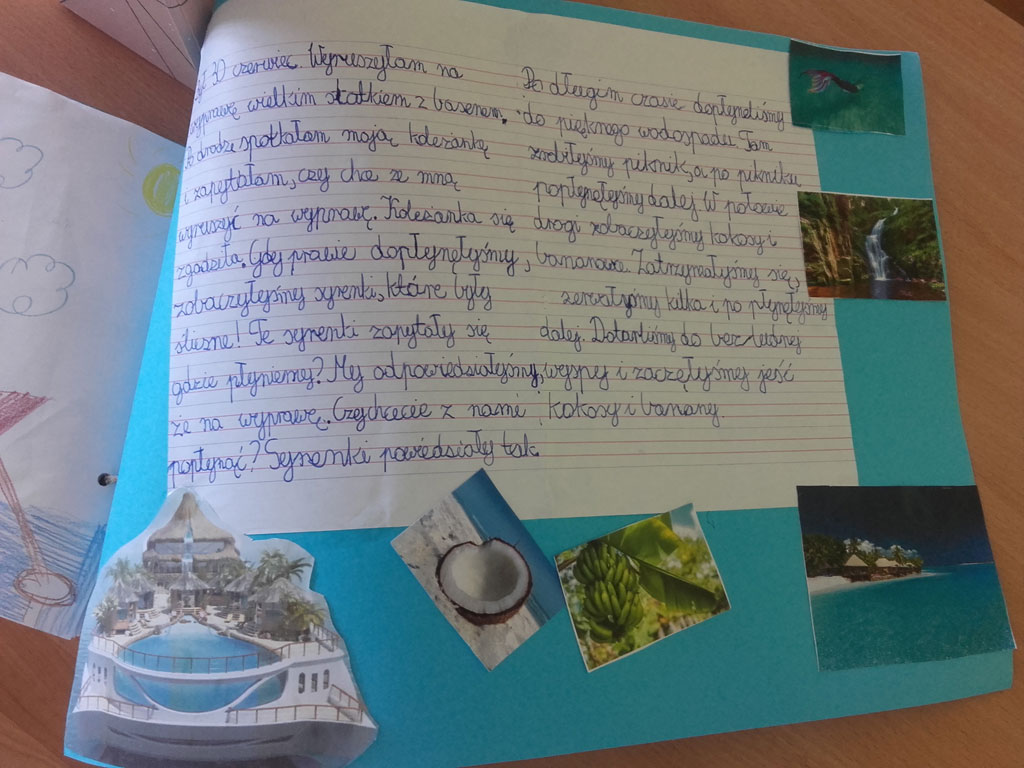 był 30 czerwiec. Wyruszyłam na
wyprawę wielkim statkiem z basenem.
Po drodze spotkałam moją koleżankę
i zapytałam, czy chce ze mną
wyruszyć na wyprawę. Koleżanka się
zgodziła. Gdy prawie dopłynęłyśmy,
zobaczyłyśmy syrenki, które były
śliczne! Te syrenki zapytały się
gdzie płyniemy? My odpowiedziałyśmy,
że na wyprawę. Czy chcecie z nami
popłynąć? Syrenki powiedziały tak
Po długim czasie dopłynęliśmy
do pięknego wodospadu. Tam
zrobiłyśmy piknik, a po pikniku
popłynęłyśmy dalej W połowie
drogi zobaczyłyśmy kokosy i
bananowa. Zatrzymałyśmy się,
zerwałyśmy kilka i po płynęłyśmy
dalej. Dotarliśmy do bez ludnej
wyspy i zaczęłyśmy jeść
kokosy i banany